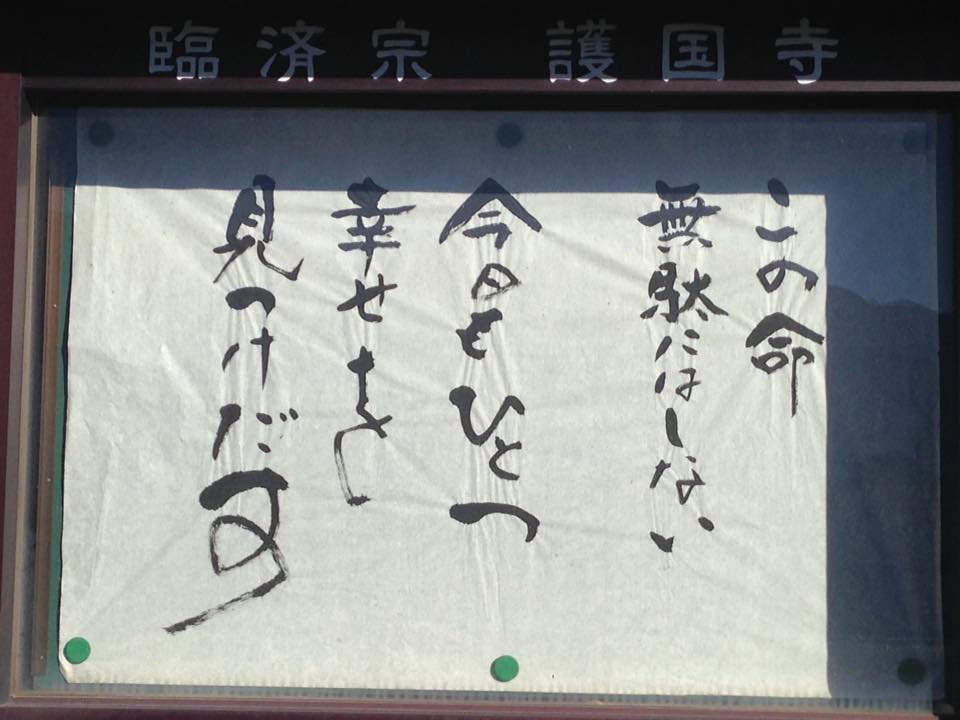 臨済宗　護国寺
この命
無駄にはしない
今日もひとつ
幸せを
見つけだす